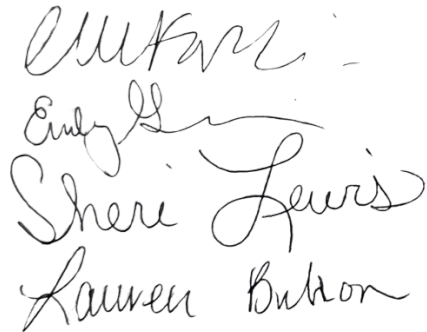 Emily G
Sheri Lewis
Lauren Button